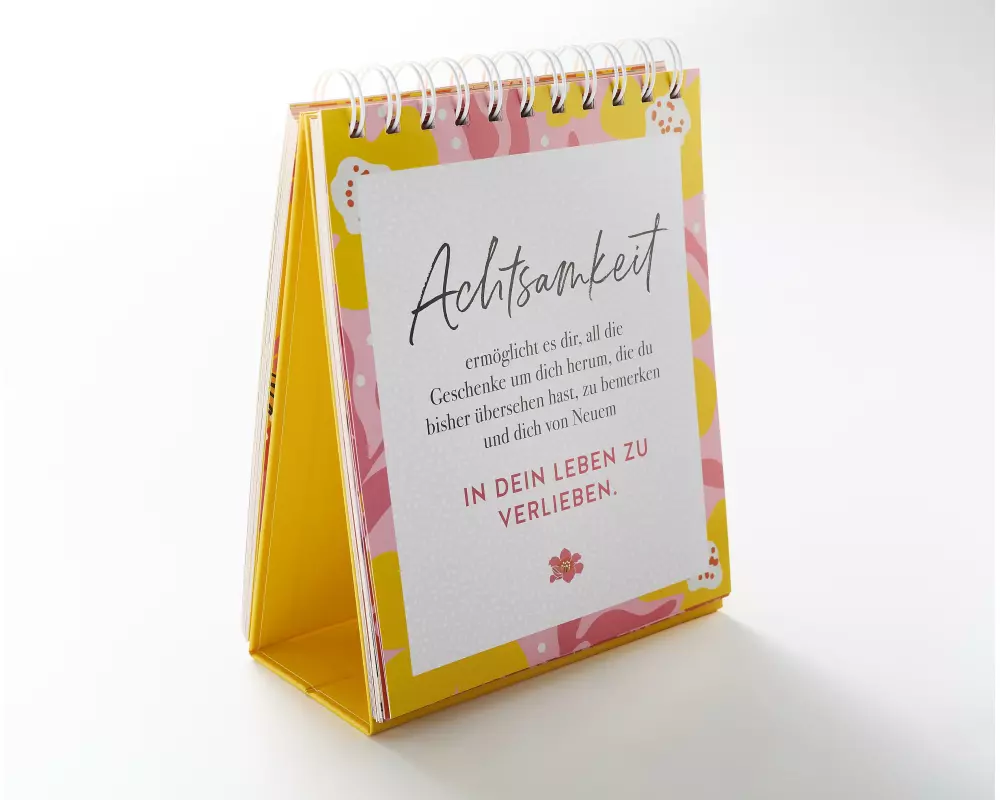 Achtsamkeit
ermöglicht es dir, all die
Geschenke um dich herum, die du
bisher übersehen hast, zu bemerken
und dich von Neuem
IN DEIN LEBEN ZU
VERLIEBEN.